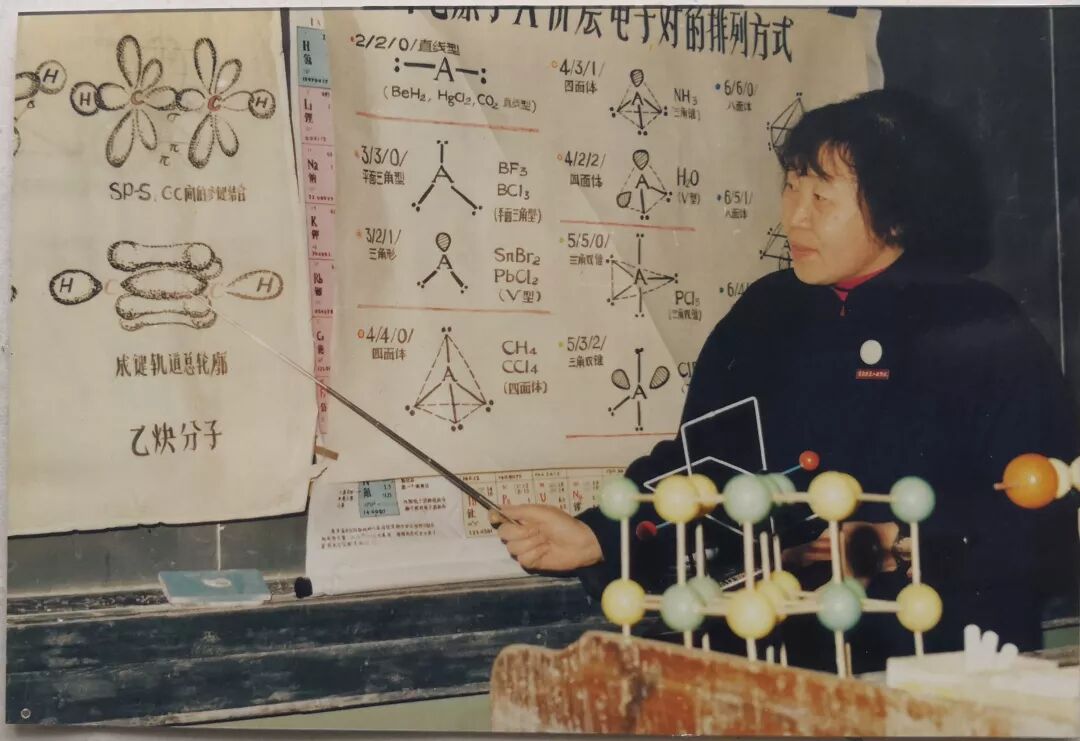 H
H C C H
π
π
SP-S, CC间的多键结合
H C C H
成键轨道总轮廓
乙炔分子
H
氢
Li
锂
Na
钠
K
钾
Rb
铷
原子A价层电子对的排列方式
2/2/0/直线型
:—A—:
(BeH₂, HgCl₂, CO₂ 直线型)
3/3/0/
平面三角型
A
BF₃
BCl₃
(平面三角型)
3/2/1/
三角形
A
SnBr₂
PbCl₂
(V型)
4/4/0/
四面体
A
CH₄
CCl₄
(四面体)
4/3/1/
四面体
A
NH₃
(三角锥)
4/2/2/
四面体
A
H₂O
(V型)
5/5/0/
三角双锥
A
PCl₅
(三角双锥)
5/3/2/
三角双锥
A
6/6/0/
八面体
6/5/1/
八面体
6/4/